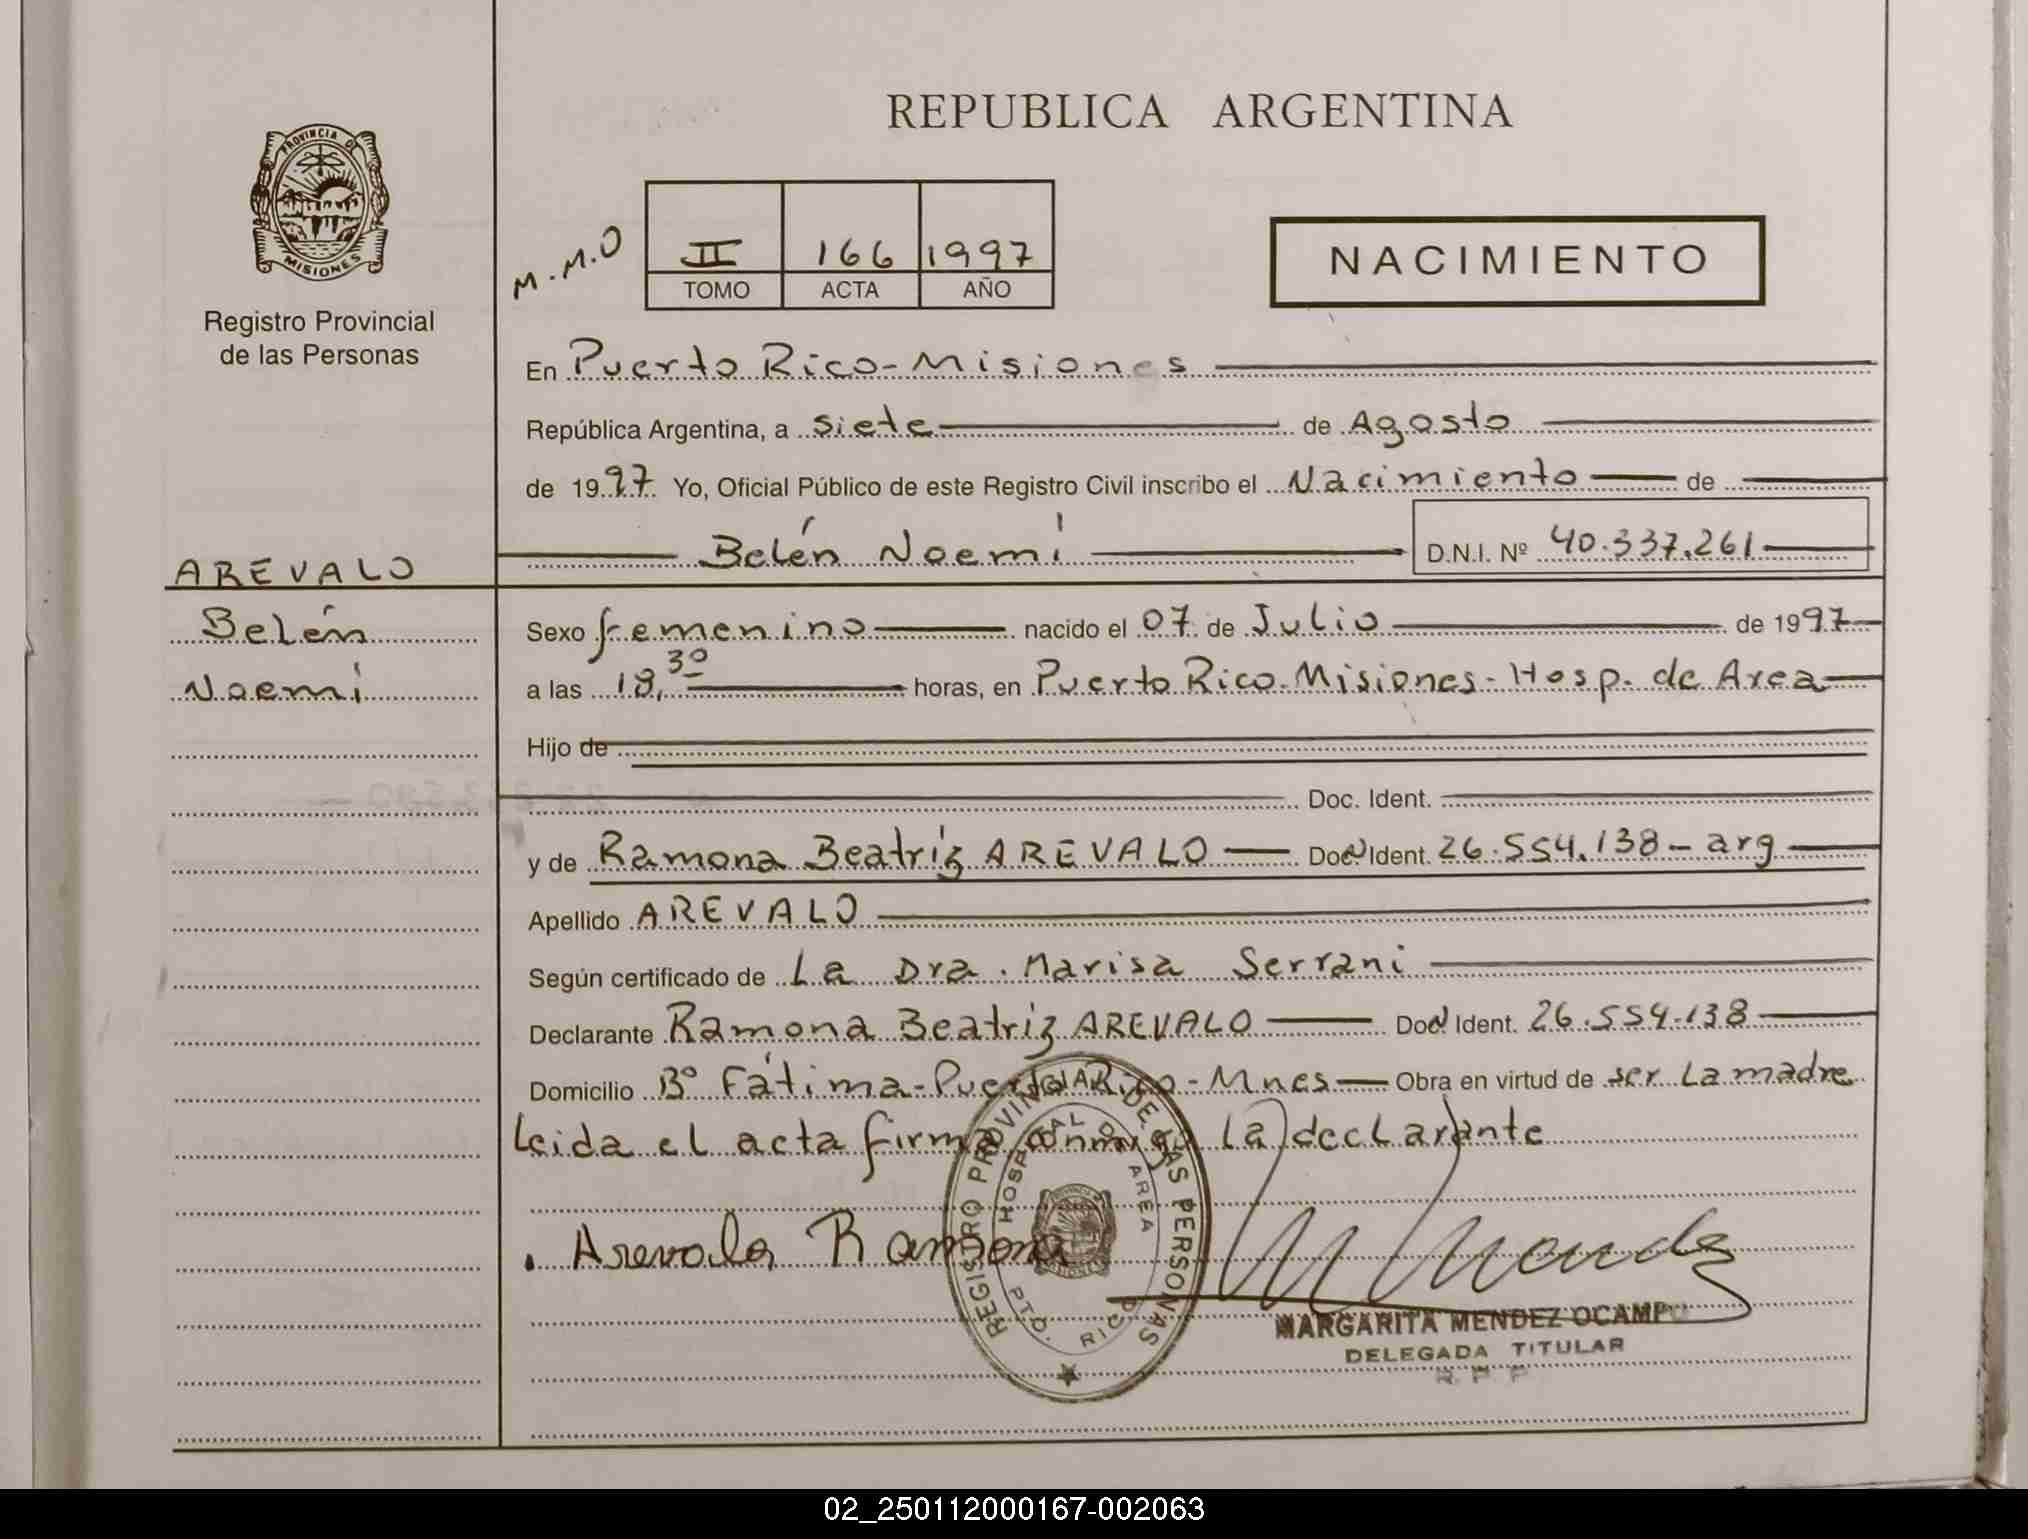 REPUBLICA ARGENTINA
PROVINCIA DE
MISIONES
Registro Provincial
de las Personas
M.M.O
II 166 1997
TOMO ACTA AÑO
NACIMIENTO
En Puerto Rico-Misiones
República Argentina, a siete de Agosto
de 1997 Yo, Oficial Público de este Registro Civil inscribo el Nacimiento de
Belén Noemí D.N.I. Nº 40.337.261
AREVALO
Belén
Noemí
Sexo femenino nacido el 07 de Julio de 1997
a las 18,30 horas, en Puerto Rico-Misiones-Hosp. de Area
Hijo de
Doc. Ident.
y de Ramona Beatríz AREVALO Doc. Ident. 26.554.138-arg
Apellido AREVALO
Según certificado de La Dra. Marisa Serrani
Declarante Ramona Beatriz AREVALO Doc. Ident. 26.554.138
Domicilio Bº Fátima-Puerto Rico-Mnes Obra en virtud de ser La madre
Leida el acta firma conmigo la declarante
Arevalo Ramona
REGISTRO PROVINCIAL DE LAS PERSONAS
HOSPITAL DE AREA
PTO. RICO
MARGARITA MENDEZ OCAMPO
DELEGADA TITULAR
R. P. P
02_250112000167-002063